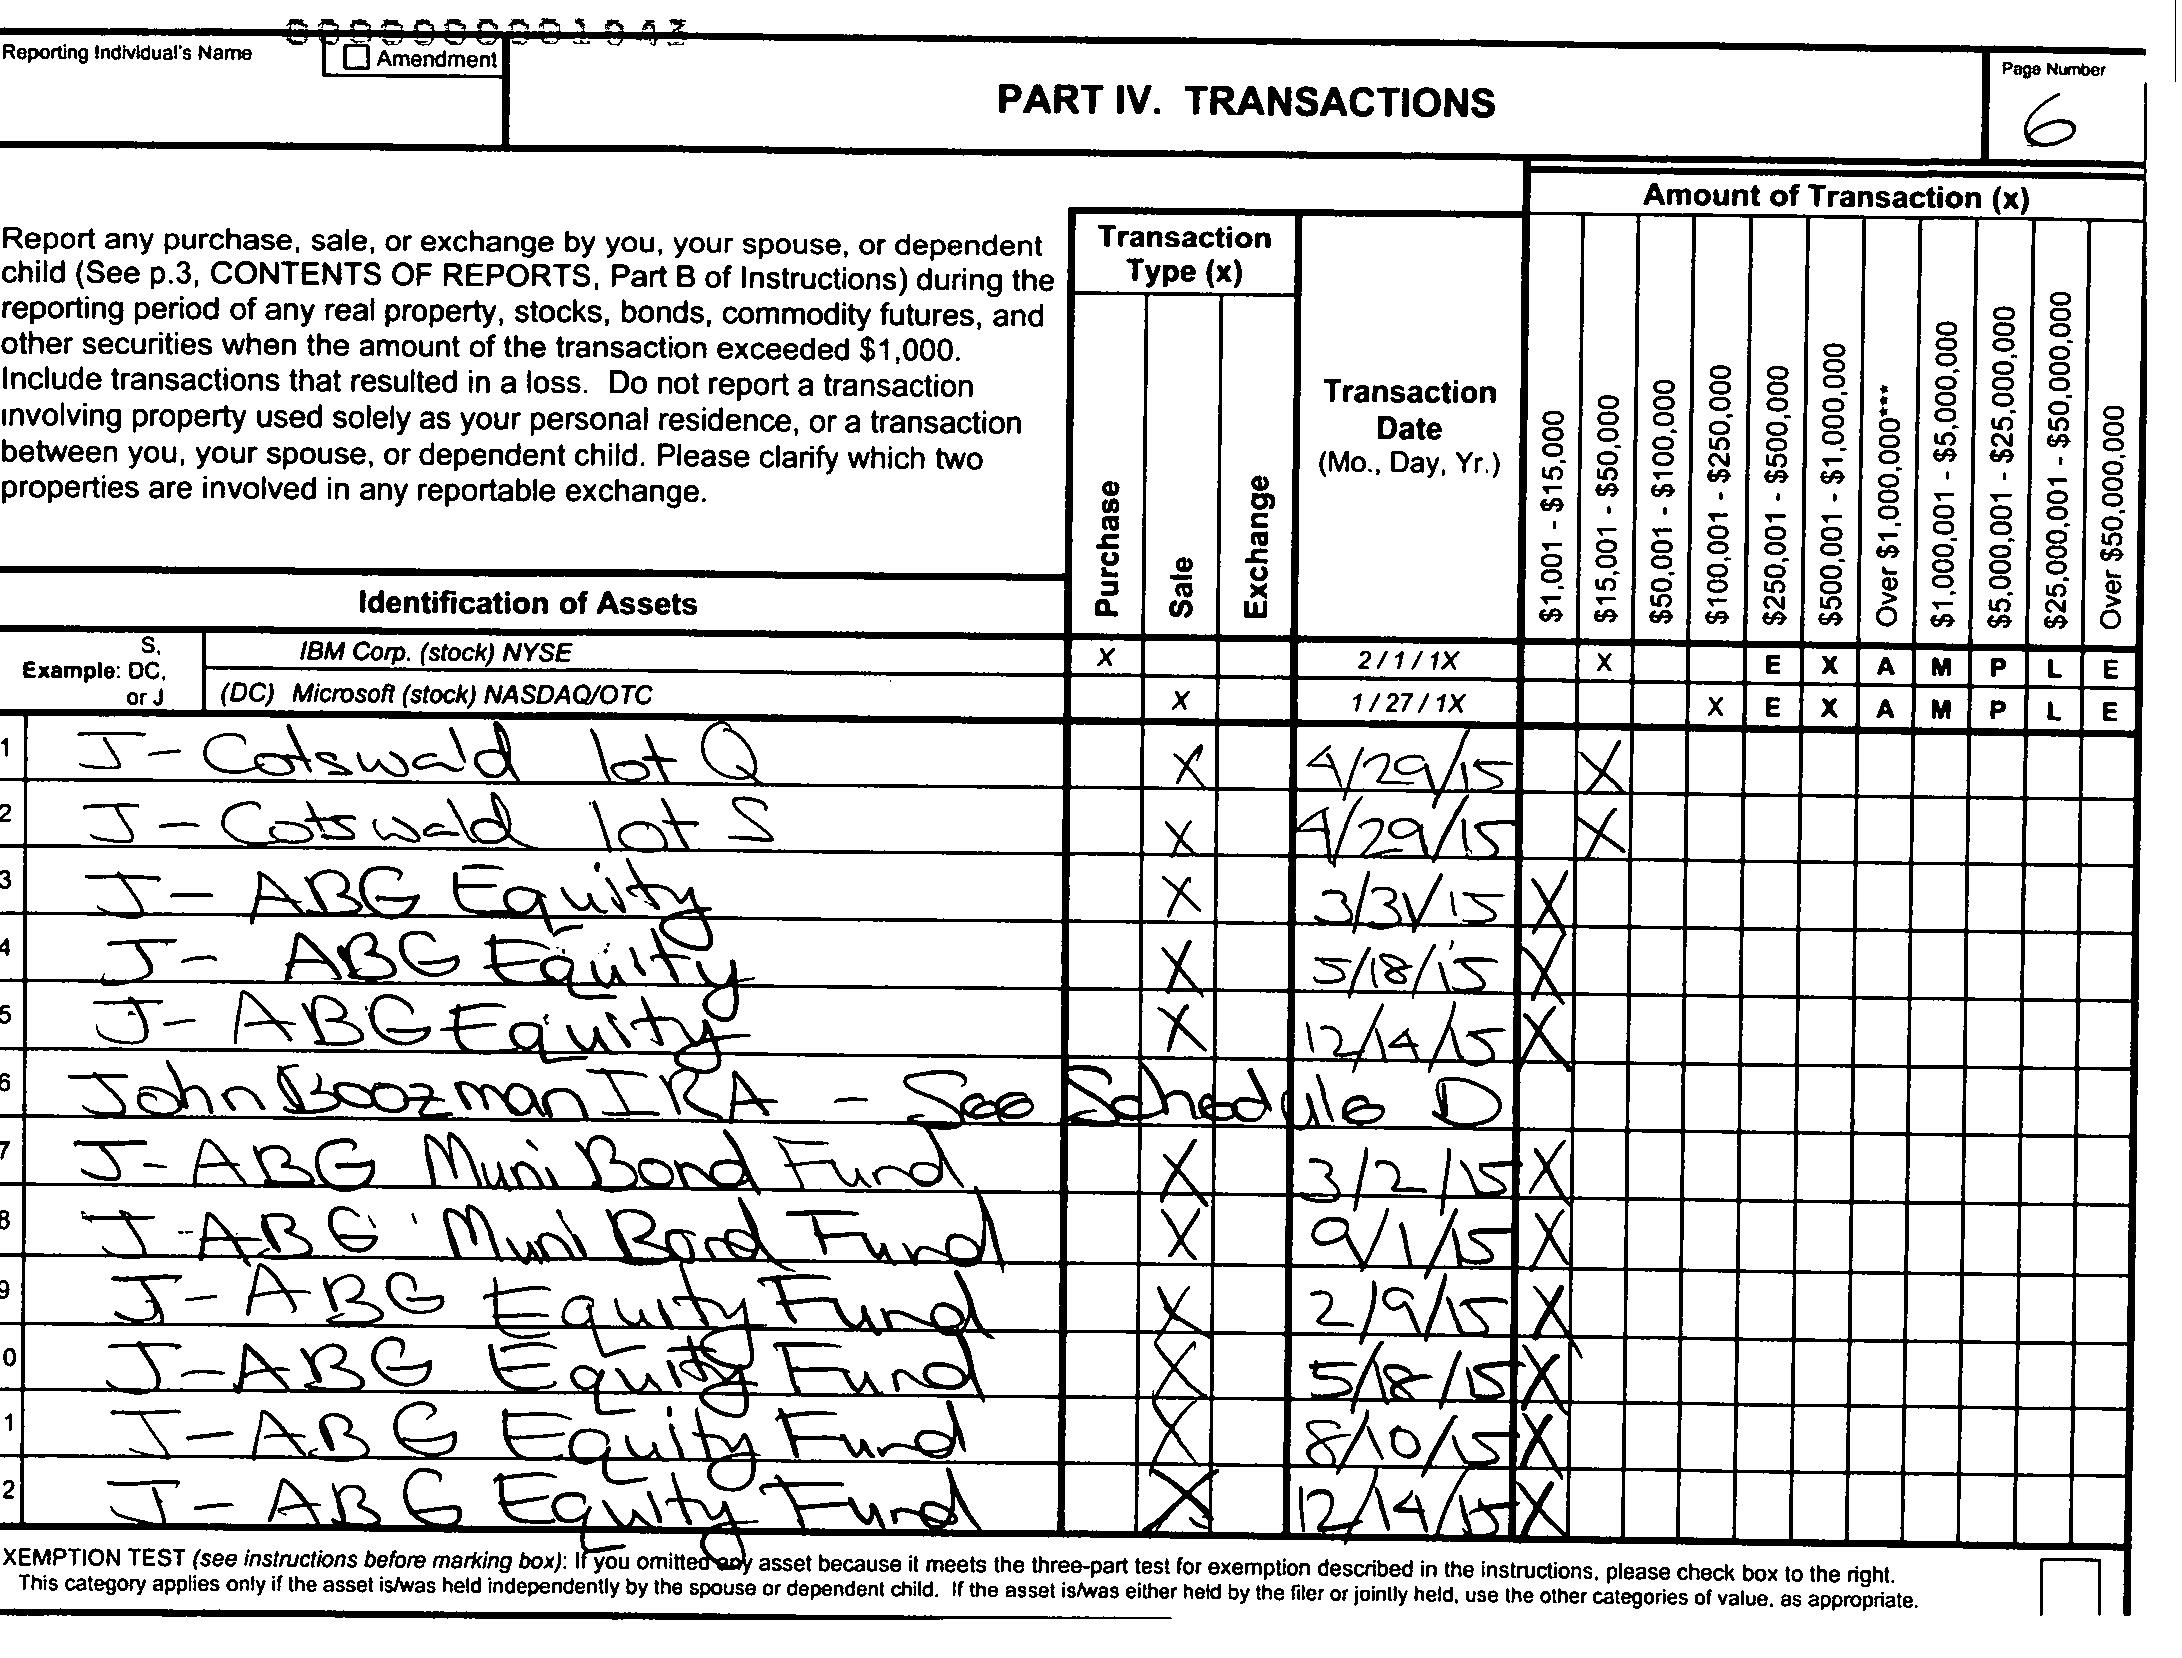 000000001043
Reporting Individual's Name
Amendment
PART IV. TRANSACTIONS
Page Number
6
Report any purchase, sale, or exchange by you, your spouse, or dependent
child (See p.3, CONTENTS OF REPORTS, Part B of Instructions) during the
reporting period of any real property, stocks, bonds, commodity futures, and
other securities when the amount of the transaction exceeded $1,000.
Include transactions that resulted in a loss. Do not report a transaction
involving property used solely as your personal residence, or a transaction
between you, your spouse, or dependent child. Please clarify which two
properties are involved in any reportable exchange.
Transaction
Type (x)
Purchase
Sale
Exchange
Transaction
Date
(Mo., Day, Yr.)
Amount of Transaction (x)
$1,001 - $15,000
$15,001 - $50,000
$50,001 - $100,000
$100,001 - $250,000
$250,001 - $500,000
$500,001 - $1,000,000
Over $1,000,000***
$1,000,001 - $5,000,000
$5,000,001 - $25,000,000
$25,000,001 - $50,000,000
Over $50,000,000
Identification of Assets
S,
Example: DC,
or J
IBM Corp. (stock) NYSE X 2/1/1X X E X A M P L E
(DC) Microsoft (stock) NASDAQ/OTC X 1/27/1X X E X A M P L E
1 J - Cotswald lot Q X 4/29/15 X
2 J - Cotswald lot S X 4/29/15 X
3 J - ABG Equity X 3/31/15 X
4 J - ABG Equity X 5/18/15 X
5 J - ABG Equity X 12/14/15 X
6 John Boozman IRA - See Schedule D
7 J - ABG Muni Bond Fund X 3/2/15 X
8 J - ABG Muni Bond Fund X 9/1/15 X
9 J - ABG Equity Fund X 2/9/15 X
0 J - ABG Equity Fund X 5/18/15 X
1 J - ABG Equity Fund X 8/10/15 X
2 J - ABG Equity Fund X 12/14/15 X
XEMPTION TEST (see instructions before marking box): If you omitted any asset because it meets the three-part test for exemption described in the instructions, please check box to the right.
This category applies only if the asset is/was held independently by the spouse or dependent child. If the asset is/was either held by the filer or jointly held, use the other categories of value, as appropriate.